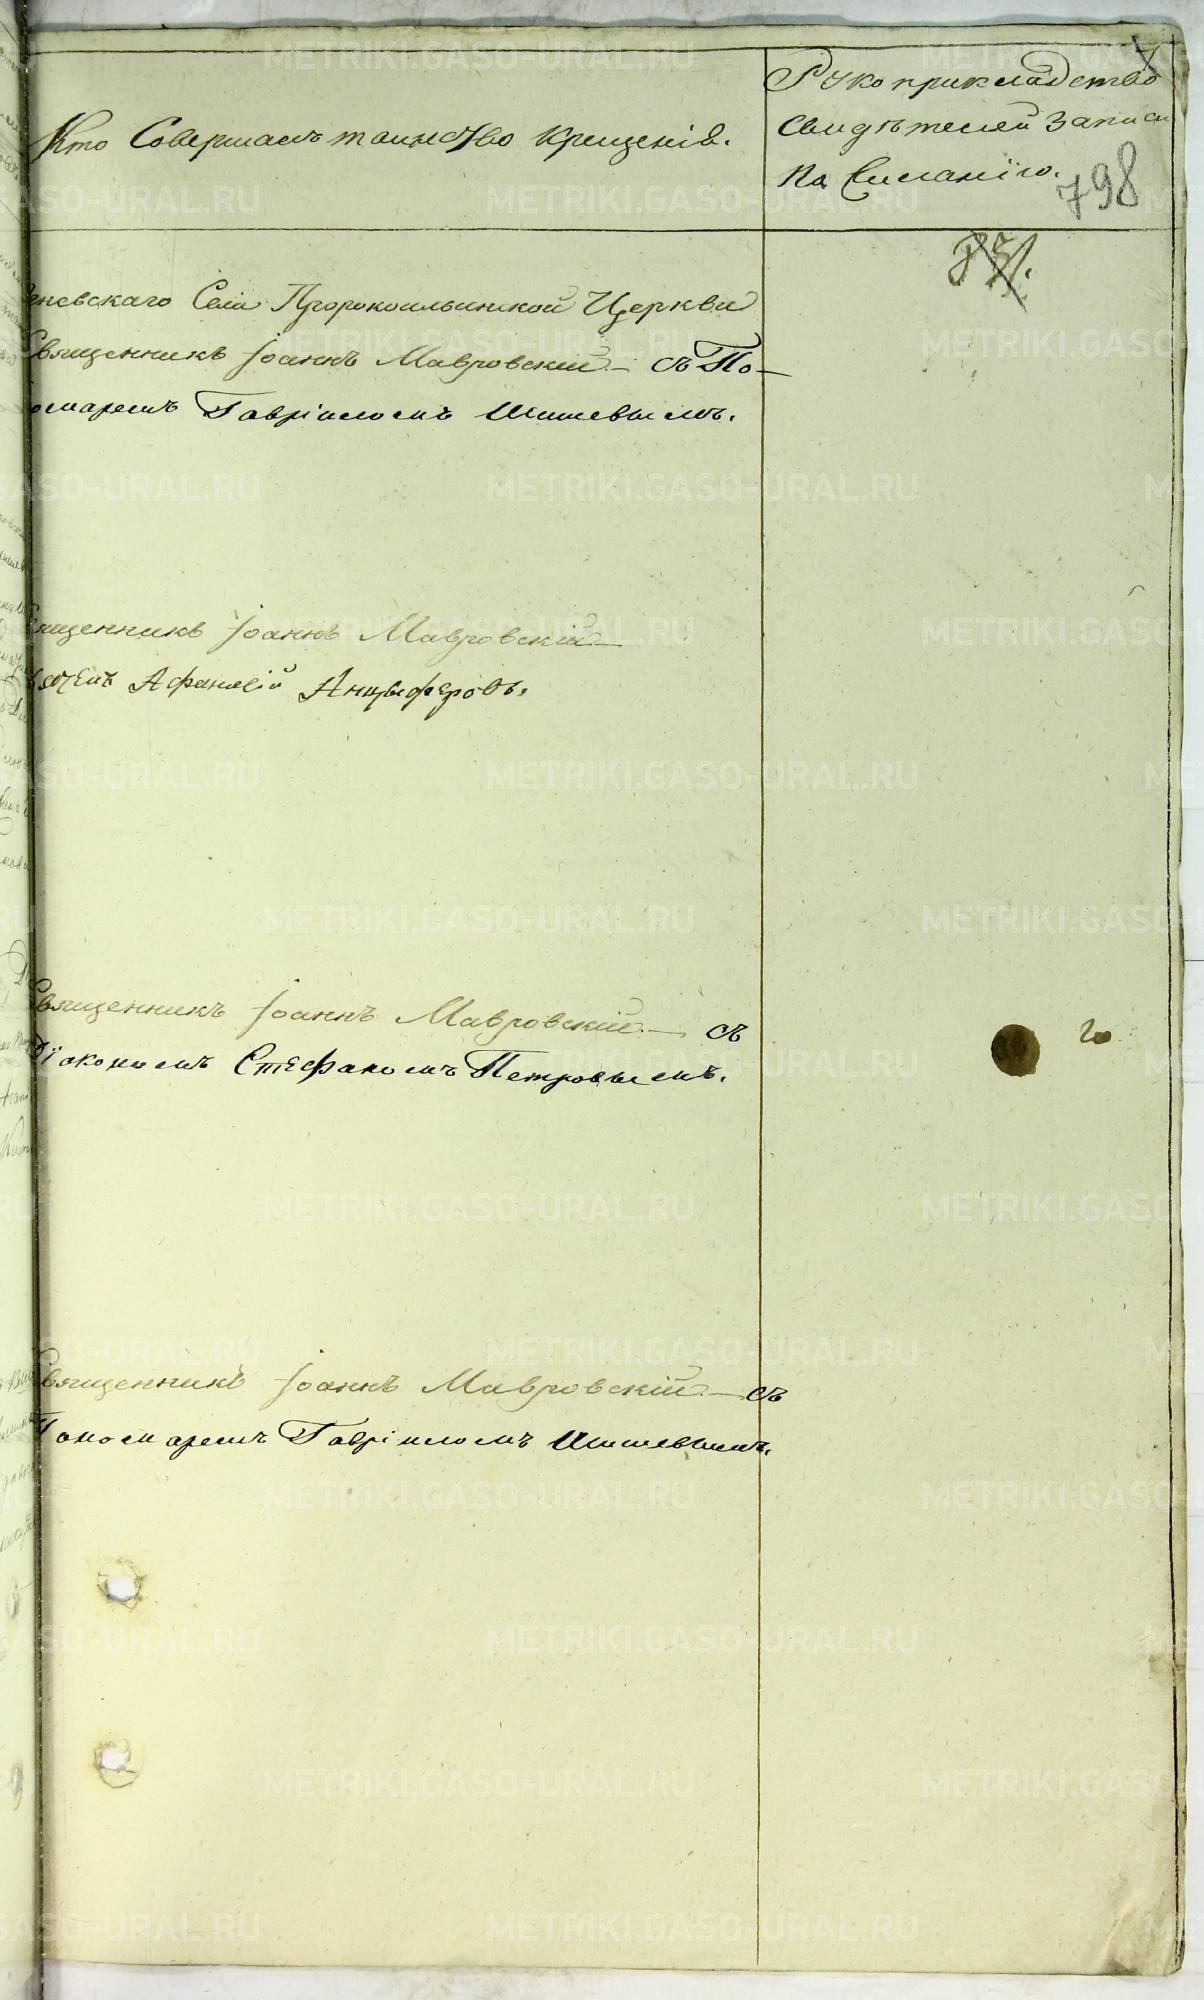 Кто Совершалъ таинство крещенія.
Рукоприкладство
свидѣтелей записи
па желанію.
798
Села Пророкоильинской Церкви
Священникъ Іоаннъ Мавровскій – съ По-
номаремъ Гавріиломъ Шишевымъ.
Священникъ Іоаннъ Мавровскій –
Афанасій Анцыферовъ.
Священникъ Іоаннъ Мавровскій. – съ
Діакономъ Стефаномъ Петровымъ.
Священникъ Іоаннъ Мавровскій. – съ
Пономаремъ Гавріиломъ Шишевымъ.
METRIKI.GASO-URAL.RU